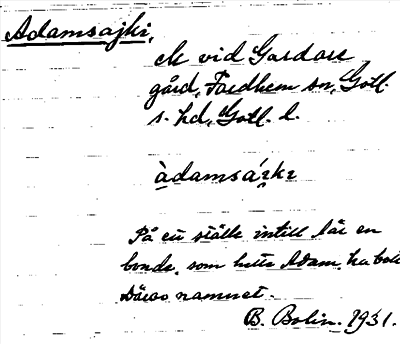 Adamsajki,
vid Gardare
gård, Fardhem sn, Gotl.
s. hd, Gotl. l.
På ett ställe intill lär en
bonde, som hette Adam, ha bott
Därav namnet.
B. Bolin. 1931.